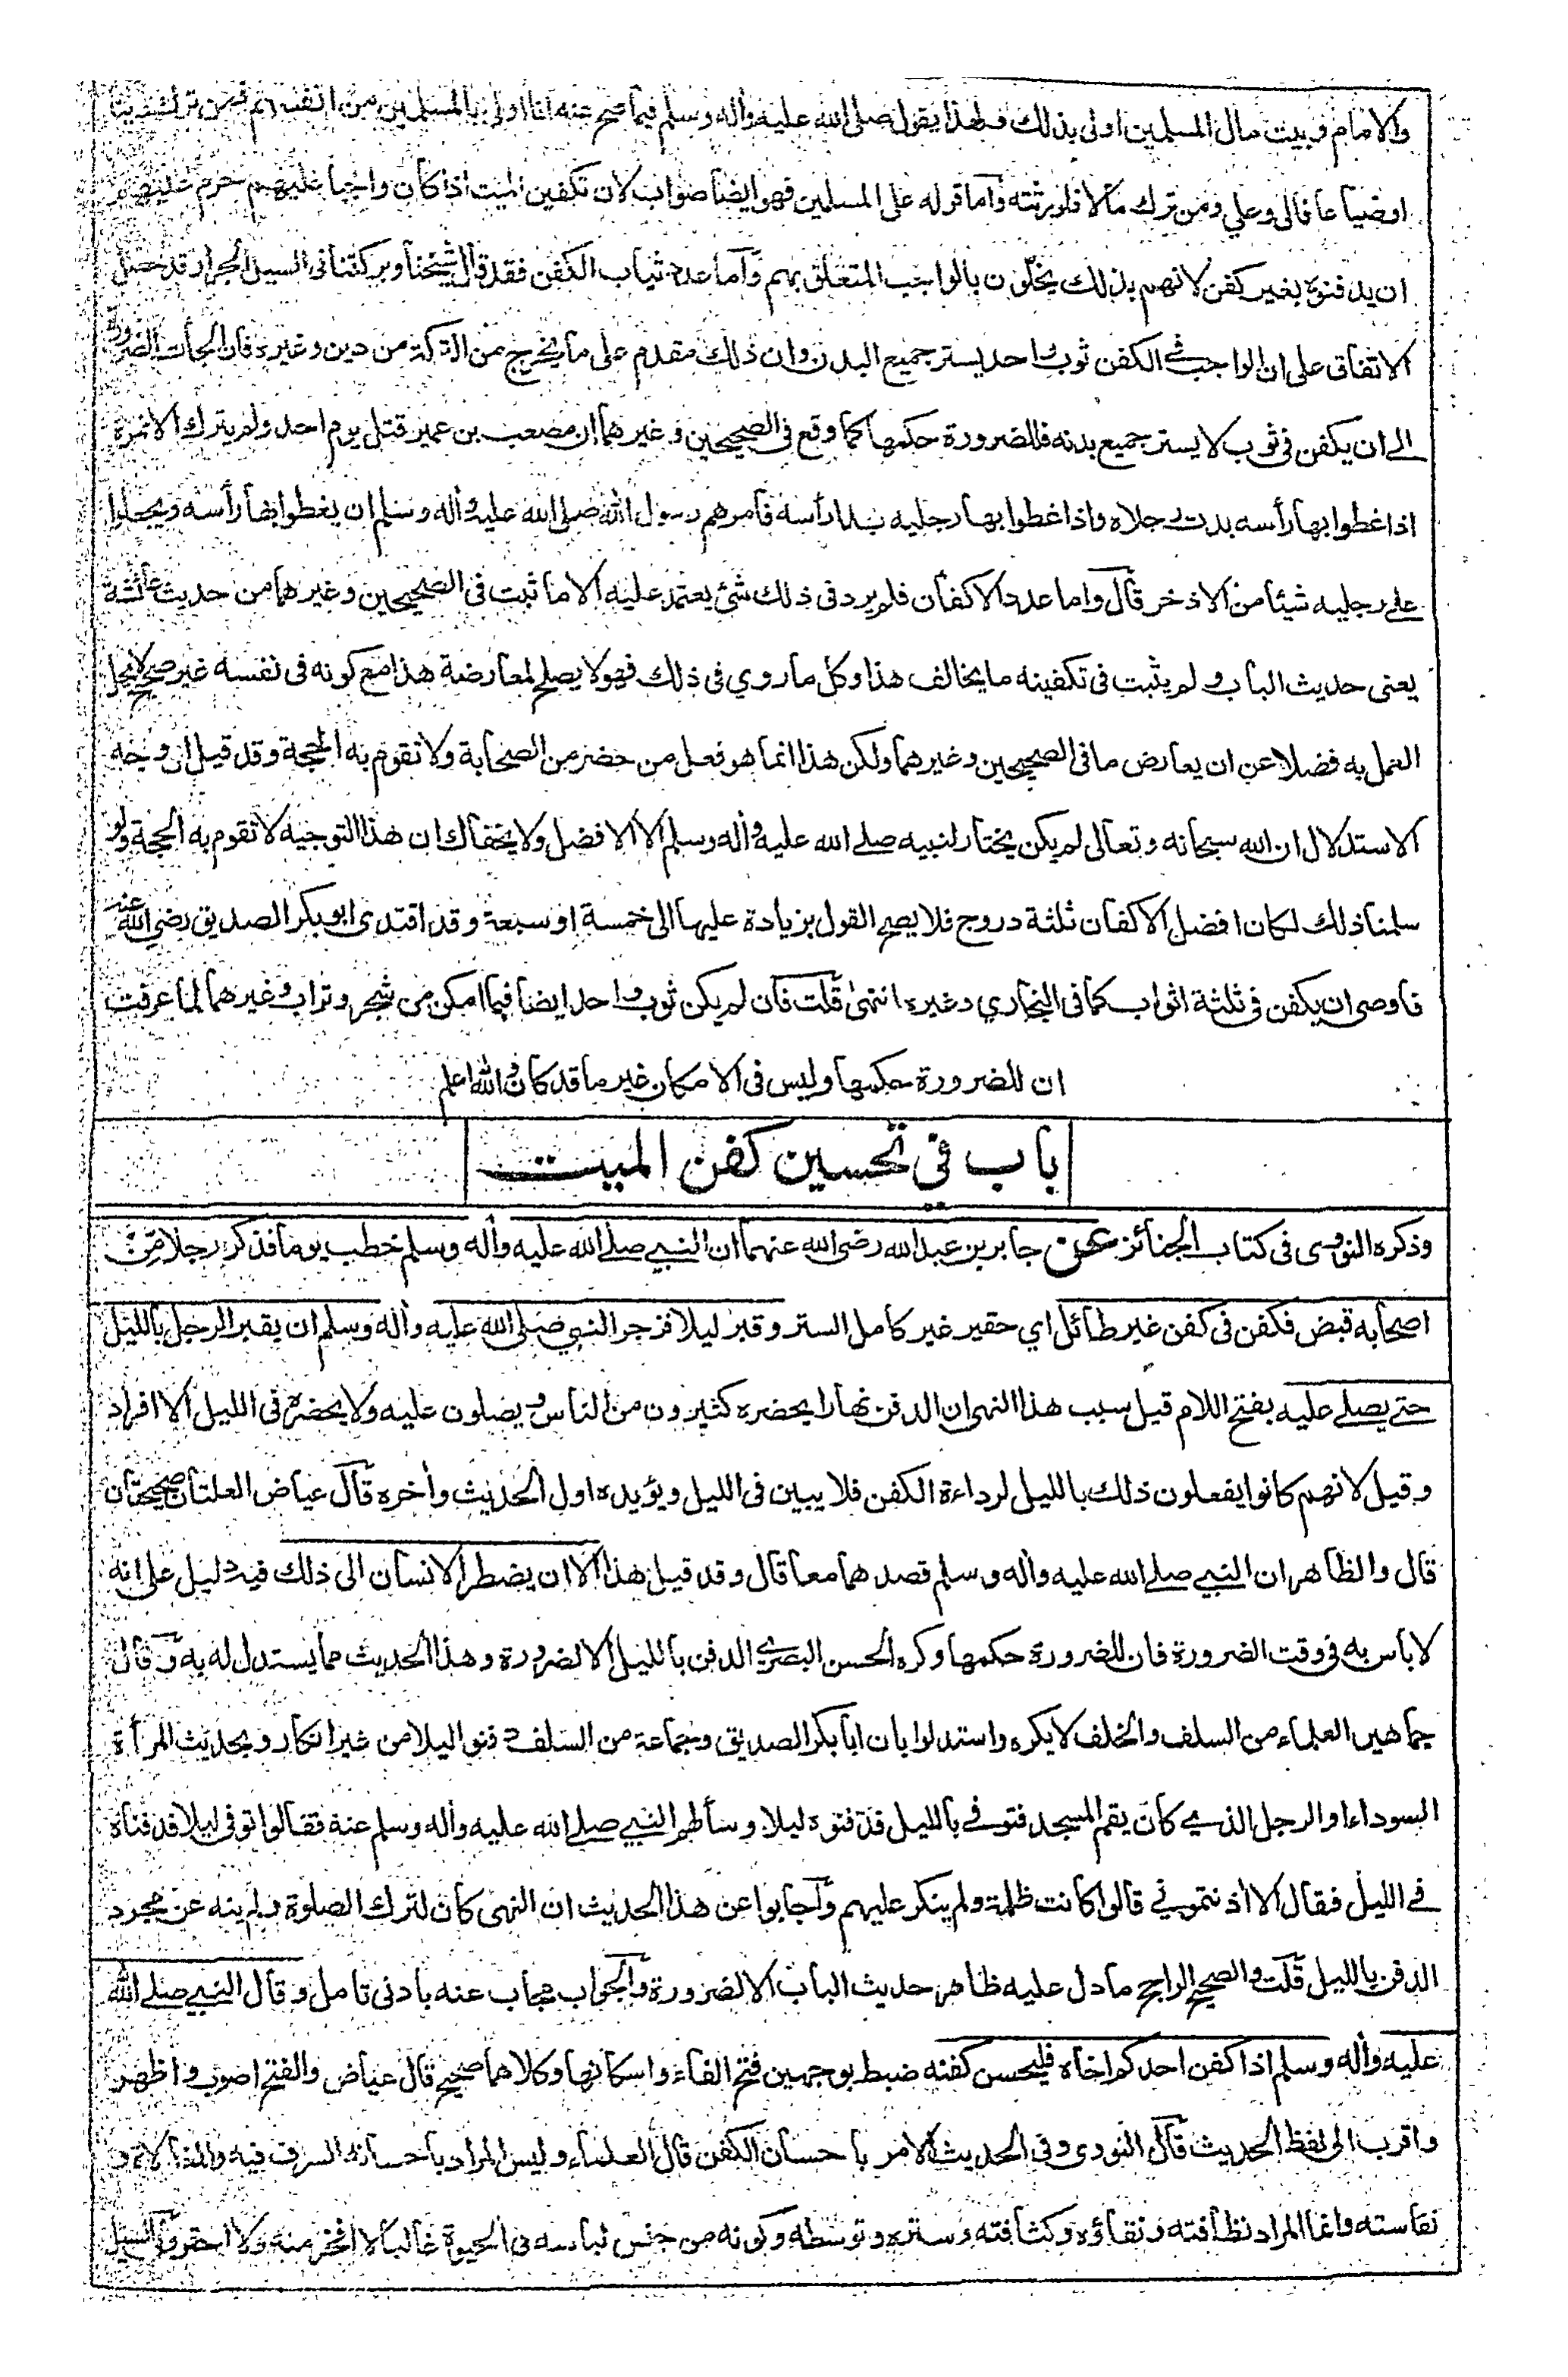 والامام وبيت مال المسلمين اولى بذلك فلهذا يقول صلى الله عليه وأله وسلم فيما صح عنه انا اولى بالمسلمين من انفسهم فمن ترك دينا
اوضياعا فالى وعلي ومن ترك مالا فلورثته وأما قوله على المسلمين فهو ايضا صواب لان تكفين الميت اذا كان واجبا عليهم حرم عليهم
ان يدفنوه بغير كفن لانهم بذلك يخلون بالواجب المتعلق بهم وأما عدد ثياب الكفن فقد قال شيخنا وبركتنا فى السيل الجرار قد حصل
الاتفاق على ان الواجب فى الكفن ثوب واحد يستر جميع البدن وان ذلك مقدم على ما يخرج من التركة من دين وغيره فان الجأت الضرورة
الى ان يكفن فى ثوب لا يستر جميع بدنه فللضرورة حكمها كما وقع فى الصحيحين وغيرهما ان مصعب بن عمير قتل يوم احد ولم يترك الا نمرة
اذا غطوا بها رأسه بدت رجلاه واذا غطوا بها رجليه بدا رأسه فأمرهم رسول الله صلى الله عليه وأله وسلم ان يغطوا بها رأسه ويجعلوا
على رجليه شيئا من الاذخر قال واما عدد الاكفان فلم يرد فى ذلك شئ يعتمد عليه الا ما ثبت فى الصحيحين وغيرهما من حديث عائشة
يعنى حديث الباب ولم يثبت فى تكفينه ما يخالف هذا وكل ما روي فى ذلك فهو لا يصلح لمعارضة هذا مع كونه فى نفسه غير صحيح لا يحل
العمل به فضلا عن ان يعارض ما فى الصحيحين وغيرهما ولكن هذا انما هو فعل من حضر من الصحابة ولا تقوم به الحجة وقد قيل ان وجه
الاستدلال ان الله سبحانه وتعالى لم يكن يختار لنبيه صلى الله عليه وأله وسلم الا الافضل ولا يخفاك ان هذا التوجيه لا تقوم به الحجة ولو
سلمنا ذلك لكان افضل الاكفان ثلثة دروج فلا يصح القول بزيادة عليها الى خمسة او سبعة وقد اقتدى ابوبكر الصديق رضي الله عنه
فأوصى ان يكفن فى ثلثة اثواب كما فى البخاري وغيره انتهى قلت فان لم يكن ثوب واحد ايضا فيما امكن من شجر وتراب وغيرهما لما عرفت
ان للضرورة حكمها وليس فى الامكان غير ما قد كان والله اعلم
باب في تحسين كفن الميت
وذكره النووى فى كتاب الجنائز عن جابر بن عبدالله رضى الله عنهما ان النبي صلى الله عليه وأله وسلم خطب يوما فذكر رجلا من
اصحابه قبض فكفن فى كفن غير طائل اي حقير غير كامل الستر وقبر ليلا فزجر النبي صلى الله عليه وأله وسلم ان يقبر الرجل بالليل
حتى يصلى عليه بفتح اللام قيل سبب هذا النهى ان الدفن نهارا يحضره كثيرون من الناس ويصلون عليه ولا يحضره فى الليل الا افراد
وقيل لانهم كانوا يفعلون ذلك بالليل لرداءة الكفن فلا يبين فى الليل ويؤيده اول الحديث وأخره قال عياض العلتان صحيحتان
قال والظاهر ان النبي صلى الله عليه وأله وسلم قصدهما معا قال وقد قيل هذا الا ان يضطر الانسان الى ذلك فيه دليل على انه
لا بأس به فى وقت الضرورة فان للضرورة حكمها وكره الحسن البصري الدفن بالليل الا لضرورة وهذا الحديث مما يستدل له به وقال
جماهير العلماء من السلف والخلف لا يكره واستدلوا بان ابا بكر الصديق وجماعة من السلف دفنوا ليلا من غير انكار وبحديث المرأة
السوداء او الرجل الذي كان يقم المسجد فتوفي بالليل فدفنوه ليلا وسألهم النبي صلى الله عليه وأله وسلم عنه فقالوا توفى ليلا فدفناه
في الليل فقال الا أذنتموني قالوا كانت ظلمة ولم ينكر عليهم وأجابوا عن هذا الحديث ان النهى كان لترك الصلوة ولم ينه عن مجرد
الدفن بالليل قلت والصحيح الراجح ما دل عليه ظاهر حديث الباب الا لضرورة والجواب مجاب عنه بادنى تامل وقال النبي صلى الله
عليه وأله وسلم اذا كفن احدكم اخاه فليحسن كفنه ضبط بوجهين فتح الفاء واسكانها وكلاهما صحيح قال عياض والفتح اصوب واظهر
واقرب الى لفظ الحديث قال النووى وفى الحديث الامر باحسان الكفن قال العلماء وليس المراد باحسانه السرف فيه والمغالاة و
نفاسته وانما المراد نظافته ونقاؤه وكثافته وستره وتوسطه وكونه من جنس لباسه فى الحيوة غالبا لا افخر منه ولا احقر وفى السيل